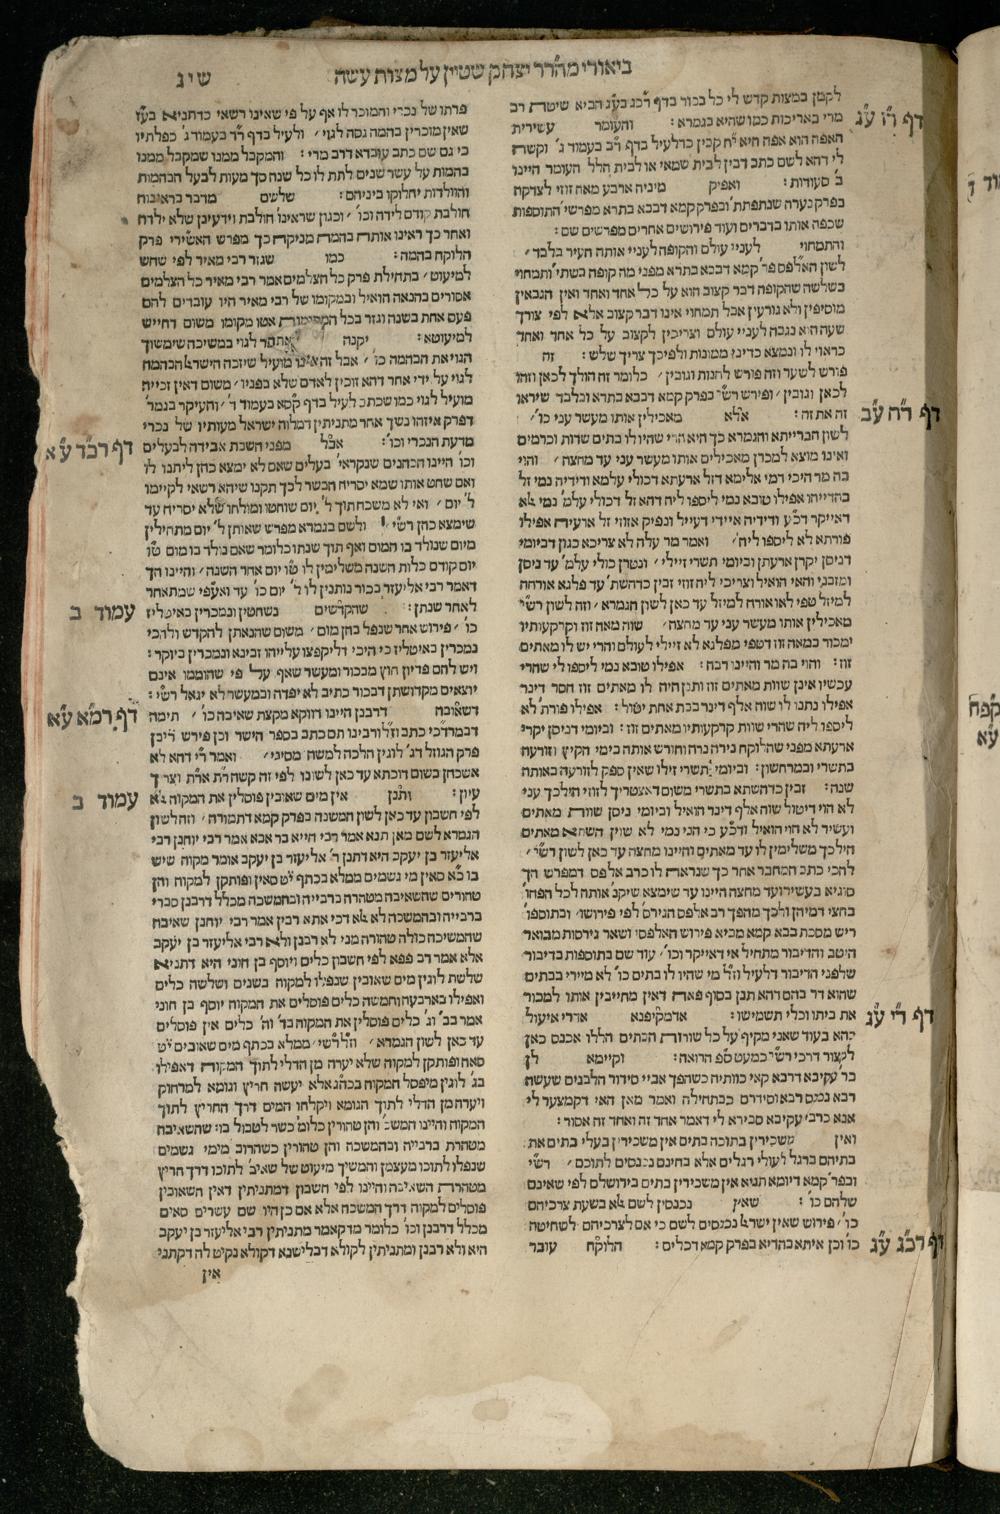 ביאורי מהרר יצחק שטיין על מצות עשה
שיג
דף ר״ו ע״ג
לקמן במצות קדש לי כל בכור בדף רכג בע״ג הביא שיטת רב
מרי באריכות כמו שהיא בגמרא : והעומר עשירית
האפה הוא אפה חיא י״ח קבין כדלעיל בדף ר״ב בעמוד ג׳ וקשה
לי דהא לשם כתב דבין לבית שמאי או לבית הלל העומר היינו
ב׳ סעודות : ואפיק מיניה ארבע מאה זוזי לצדקה
בפרק נערה שנתפתת׳ ובפרק קמא דבבא בתרא מפרשי׳ התוספות
שכפה אותו בדברים ועוד פירושים אחרים מפרשים שם :
והתמחוי לעניי עולם והקופה לעניי אותה העיר בלבד ׳
לשון האלפס פר׳ קמא דבבא בתרא מפני מה קופה בשתי׳ ותמחוי
בשלשה שהקופה דבר קצוב הוא על כל אחד ואחד ואין הגבאין
מוסיפין ולא גורעין אבל תמחוי אינו דבר קצוב אלא לפי צורך
שעה הוא נגבה לעניי עולם וצריכין לקצוב על כל אחד ואחד
כראוי לו ונמצא כדיני ממונות ולפיכך צריך שלש : זה
פורש לשער וזה פורש לחנות וגובין ׳ כלומר זה הולך לכאן וזהו
לכאן וגובין ׳ ופירש רש״י בפרק קמא דבבא בתרא ובלבד שיראו
דף ר״ח ע״ב
זה את זה : אלא מאכילין אותו מעשר עני כו׳ ׳
לשון הברייתא והגמרא כך היא הרי שהיו לו בתים שדות וכרמים
ואינו מוצא למכרן מאכילים אותו מעשר עני עד מחצה ׳ והוי
בה מר היכי דמי אלימא דזל ארעתא דכולי עלמא ודידיה נמי זל
בהדייהו אפילו טובא נמי ליספו ליה דהא זל דכולי עלמ׳ נמי אלא
דאייקר דכ״ע ודידיה איידי דעייל ונפיק אזוזי זל ארעיה אפילו
פורתא לא ליספו ליה׳ ואמר מר עלה לא צריכא כגון דביומי
דניסן יקרן ארעתן וביומי תשרי זיילי ׳ ונטרן כולי עלמ׳ עד ניסן
ומזבני והאי הואיל וצריכי ליה זוזי זבין כדהשת׳ עד פלגא אורחה
למיזל טפי לאו אורח למיזל עד כאן לשון הגמרא ׳ וזה לשון רש״י
מאכילין אותו מעשר עני עד מחצה ׳ שוה מאה זוז וקרקעותיו
ימכור במאה זוז דטפי מפלגא לא זיילי לעולם והרי יש לו מאתים
זוז : והוי בה מר והיינו רבה : אפילו טובא נמי ליספו לי שהרי
עכשיו אינן שוות מאתים זוז ותנן היה לו מאתים זוז חסר דינר
אפילו נתנו לו שוה אלף דינר בבת אחת יטול : אפילו פורת׳ לא
ליספו ליה שהרי שוות קרקעותיו מאתים זוז : וביומי דניסן יקרי
ארעתא מפני שהלוקח נירה נרה וחורש אותה בימי הקיץ וזורעה
בתשרי ובמרחשון : וביומי תשרי זילו שאין ספק לזורעה באותה
שנה : זבין כדהשתא בתשרי משום דאצטריך לזוזי הילכך עני
לא הוי דיטול שוה אלף דינר הואיל וביומי ניסן שוות מאתים
ועשיר לא הוי הואיל ודכ״ע כי הני נמי לא שוין השתא מאתים
הילכך משלימין לו עד מאתים והיינו מחצה עד כאן לשון רש״י׳
להכי כתב המחבר אחר כך שנראה לו כרב אלפס דמפרש הך
סוגיא בעשיר ועד מחצה היינו עד שימצא שיקנ׳ אותה לכל הפחו׳
בחצי דמיהן ולכך מהפך רב אלפס הגירס׳ לפי פירושו׳ ובתוספו׳
ריש מסכת בבא קמא מביא פירוש האלפסי ושאר גירסות מבואר
היטב והדיבור מתחיל אי דאייקר וכו׳ ׳ עוד שם בתוספות בדיבור
שלפני הדיבור דלעיל וז״ל מי שהיו לו בתים כו׳ לא מיירי בבתים
שהוא דר בהם דהא תנן בסוף פאה דאין מחייבין אותו למכור
דף ר״י ע״ג
את ביתו וכלי תשמישו : אדמקיפנא אדרי איעול
יהא בעוד שאני מקיף על כל שורות הבתים הללו אכנס כאן
לקצור דרכי רש״י כמעט ספ הרואה : וקיימא לן
כר׳ עקיבא דרבא קאי כוותיה כשהפך אביי סידור הלבנים שעשה
רבא נכנס רבא וסידרם כבתחילה ואמר מאן האי דקמצער לי
אנא כרבי עקיבא סבירא לי דאמר אחד זה ואחד זה אסור :
ואין משכירין בתוכה בתים אין משכירין בעלי בתים את
בתיהם ברגל לעולי רגלים אלא בחינם נכנסים לתוכם ׳ רש״י
ובפר׳ קמא דיומא תניא אין משכירין בתים בירושלם לפי שאינם
שלהם כו׳ : שאין נכנסין לשם אלא בשעת צרכיהם
כו׳ ׳ פירוש שאין ישראל נכנסים לשם כי אם לצרכיהם לשחיטה
דף רכג ע״ג
כו׳ וכן איתא בהדיא בפרק קמא דכלים : הלוקח עובר
פרתו של נכרי והמוכר לו אף על פי שאינו רשאי כדתניא בע״ז
שאין מוכרין בהמה גסה לגוי ׳ ולעיל בדף ר״ד בעמוד ג׳ כפלתיו
כי גם שם כתב עובדא דרב מרי : והמקבל ממנו שמקבל ממנו
בהמות על עשר שנים לתת לו כל שנה סך מעות לבעל הבהמות
והוולדות יחלוקו ביניהם : שלשם מדבר בראינוה
חולבת קודם לידה וכו׳ ׳ וכגון שראינו׳ חולבת וידעינן שלא ילדה
ואחר כך ראינו אותה בהמה מניקה כך מפרש האשירי פרק
הלוקח בהמה : כמו שגזר רבי מאיר לפי שחש
למיעוט׳ בתחילת פרק כל הצלמים אמר רבי מאיר כל הצלמים
אסורים בהנאה הואיל ובמקומו של רבי מאיר היו עובדים להם
פעם אחת בשנה וגזר בכל המקומות אטו מקומו משום דחייש
למיעוטא : יקנה אתה לגוי במשיכה שימשוך
הגוי את הבהמה כו׳ ׳ אבל זה אינו מועיל שיזכה הישראל הבהמה
לגוי על ידי אחר דהא זוכין לאדם שלא בפניו ׳ משום דאין זכייה
מועיל לגוי כמו שכתב לעיל בדף קסא בעמוד ד׳ ׳ והעיקר בגמר׳
דפרק איזהו נשך אחר מתניתין דמלוה ישראל מעותיו של נכרי
דף רכד ע״א
מדעת הנכרי וכו׳ : אבל מפני השבת אבידה לבעלים
וכו׳ היינו הכהנים שנקראי׳ בעלים שאם לא ימצא כהן ליתנו לו
ואם שחט אותו שמא יסריח הבשר לכך תקנו שיהא רשאי לקיימו
ל׳ יום ׳ ואי לא משכח תוך ל׳ יום שוחטו ומולחו שלא יסריח עד
שימצא כהן רש״י ׳ ולשם בגמרא מפרש שאותן ל׳ יום מתחילין
מיום שנולד בו המום ואף תוך שנתו כלומר שאם נולד בו מום ט״ו
יום קודם כלות השנה משלימין לו ט״ו יום אחד השנה ׳ והיינו הך
דאמר רבי אליעזר בכור נותנין לו ל׳ יום כו׳ עד ואע״פי שמתאחר
עמוד ב
לאחר שנתן : שהקדשים נשחטין ונמכרין באיטליז
כו׳ ׳ פירוש אחר שנפל בהן מום ׳ משום שהנאתן להקדש ולהכי
נמכרין באיטליז כי היכי דליקפצו עלייהו זבינא ונמכרין ביוקר :
ויש להם פדיון חוץ מבכור ומעשר שאף על פי שהוממו אינם
יוצאים מקדושתן דבכור כתיב לא יפדה ובמעשר לא יגאל רש״י :
דף רמ״א ע״א
דשאובה דרבנן היינו דווקא מקצת שאיבה כו׳ ׳ תימה
דבמרדכי כתב וז״ל ורבינו תם כתב בספר הישר וכן פירש ריבן
פרק הגוזל דג׳ לוגין הלכה למשה מסיני ׳ ואמר ר״י דהא לא
אשכחן בשום דוכתא עד כאן לשונו לפי זה קשה רת ארת וצריך
עמוד ב
עיון : ותנן אין מים שאובין פוסלין את המקוה אלא
לפי חשבון עד כאן לשון המשנה בפרק קמא דתמורה ׳ וזה לשון
הגמרא לשם מאן תנא אמר רבי חייא בר אבא אמר רבי יוחנן רבי
אליעזר בן יעקב היא דתנן ר׳ אליעזר בן יעקב אומר מקוה שיש
בו כ״א סאין מי גשמים ממלא בכתף י״ט סאין ופותקן למקוה והן
טהורים שהשאיבה מטהרה ברבייה ובהמשכה מכלל דרבנן סברי
ברבייה ובהמשכה לא אלא דכי אתא רבין אמר רבי יוחנן שאיבה
שהמשיכה כולה טהורה מני לא רבנן ולא רבי אליעזר בן יעקב
אלא אמר רב פפא לפי חשבון כלים ויוסף בן חוני היא דתניא
שלשת לוגין מים שאובין שנפלו למקוה בשנים ושלשה כלים
ואפילו בארבעה וחמשה כלים פוסלים את המקוה יוסף בן חוני
אמר בב׳ וג׳ כלים פוסלין את המקוה בד׳ וה׳ כלים אין פוסלים
עד כאן לשון הגמרא ׳ וז״ל רש״י ׳ ממלא בכתף מים שאובים י״ט
סאה ופותקן למקוה שלא יערה מן הדלי לתוך המקוה דאפילו
בג׳ לוגין מיפסל המקוה בכהג אלא יעשה חריץ וגומא למרחוק
ויערה מן הדלי לתוך הגומא ויקלחו המים דרך החריץ לתוך
המקוה והיינו המשכ׳ והן טהורין כלומ׳ כשר לטבול בו : שהשאיבה
מטהרת ברבייה ובהמשכה והן טהורין כשהרוב מימי גשמים
שנפלו לתוכו מעצמן והמשיך מיעוט של שאיב׳ לתוכו דרך חריץ
מטהרת השאיבה והיינו לפי חשבון דמתניתין דאין השאובין
פוסלים למקוה דרך המשכה אלא אם כן היו שם עשרים סאים
מכלל דרבנן וכו׳ כלומר מדקאמר מתניתין רבי אליעזר בן יעקב
היא ולא רבנן ומתניתין לקולא דבלישנא דקולא נקיט לה דקתני
אין